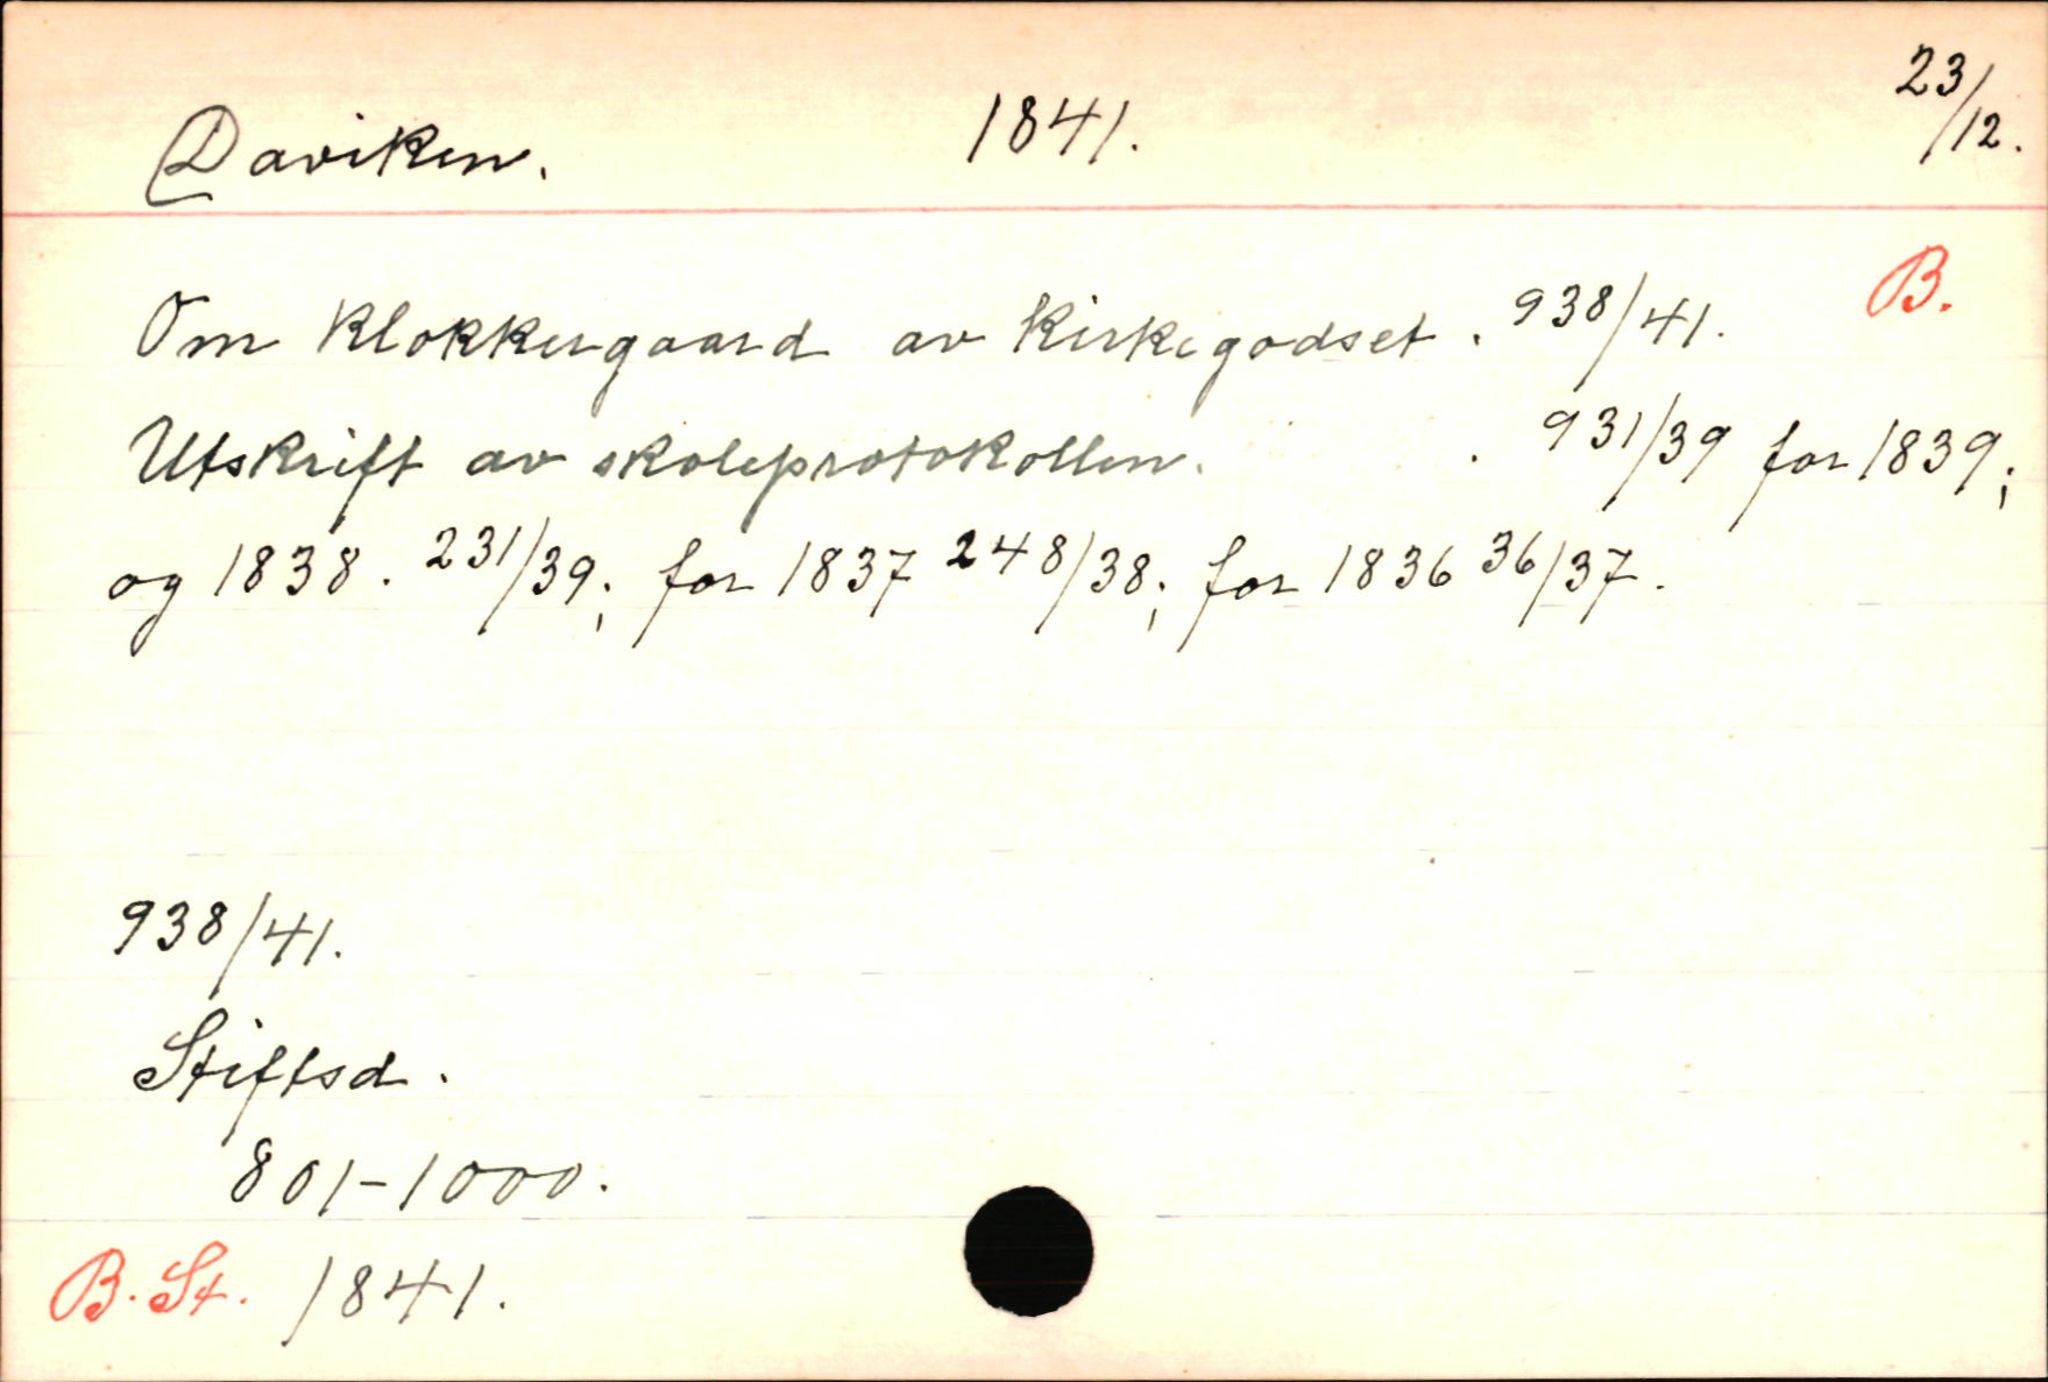 Daviken. 1841. 23/12.
B.
Om Klokkergaard av Kirkegodset. 938/41.
Utskrift av skoleprotokollen. . 931/39 for 1839;
og 1838. 231/39; for 1837 248/38; for 1836 36/37.
938/41.
Stiftsd.
801-1000.
B. St. 1841.